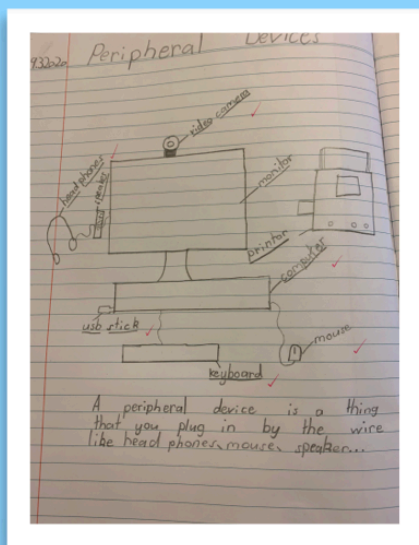 9.3.2020 Peripheral Devices
video camera
head phones
speaker
monitor
printor
computer
usb stick
mouse
keyboard
A peripheral device is a thing
that you plug in by the wire
like head phones, mouse, speaker...